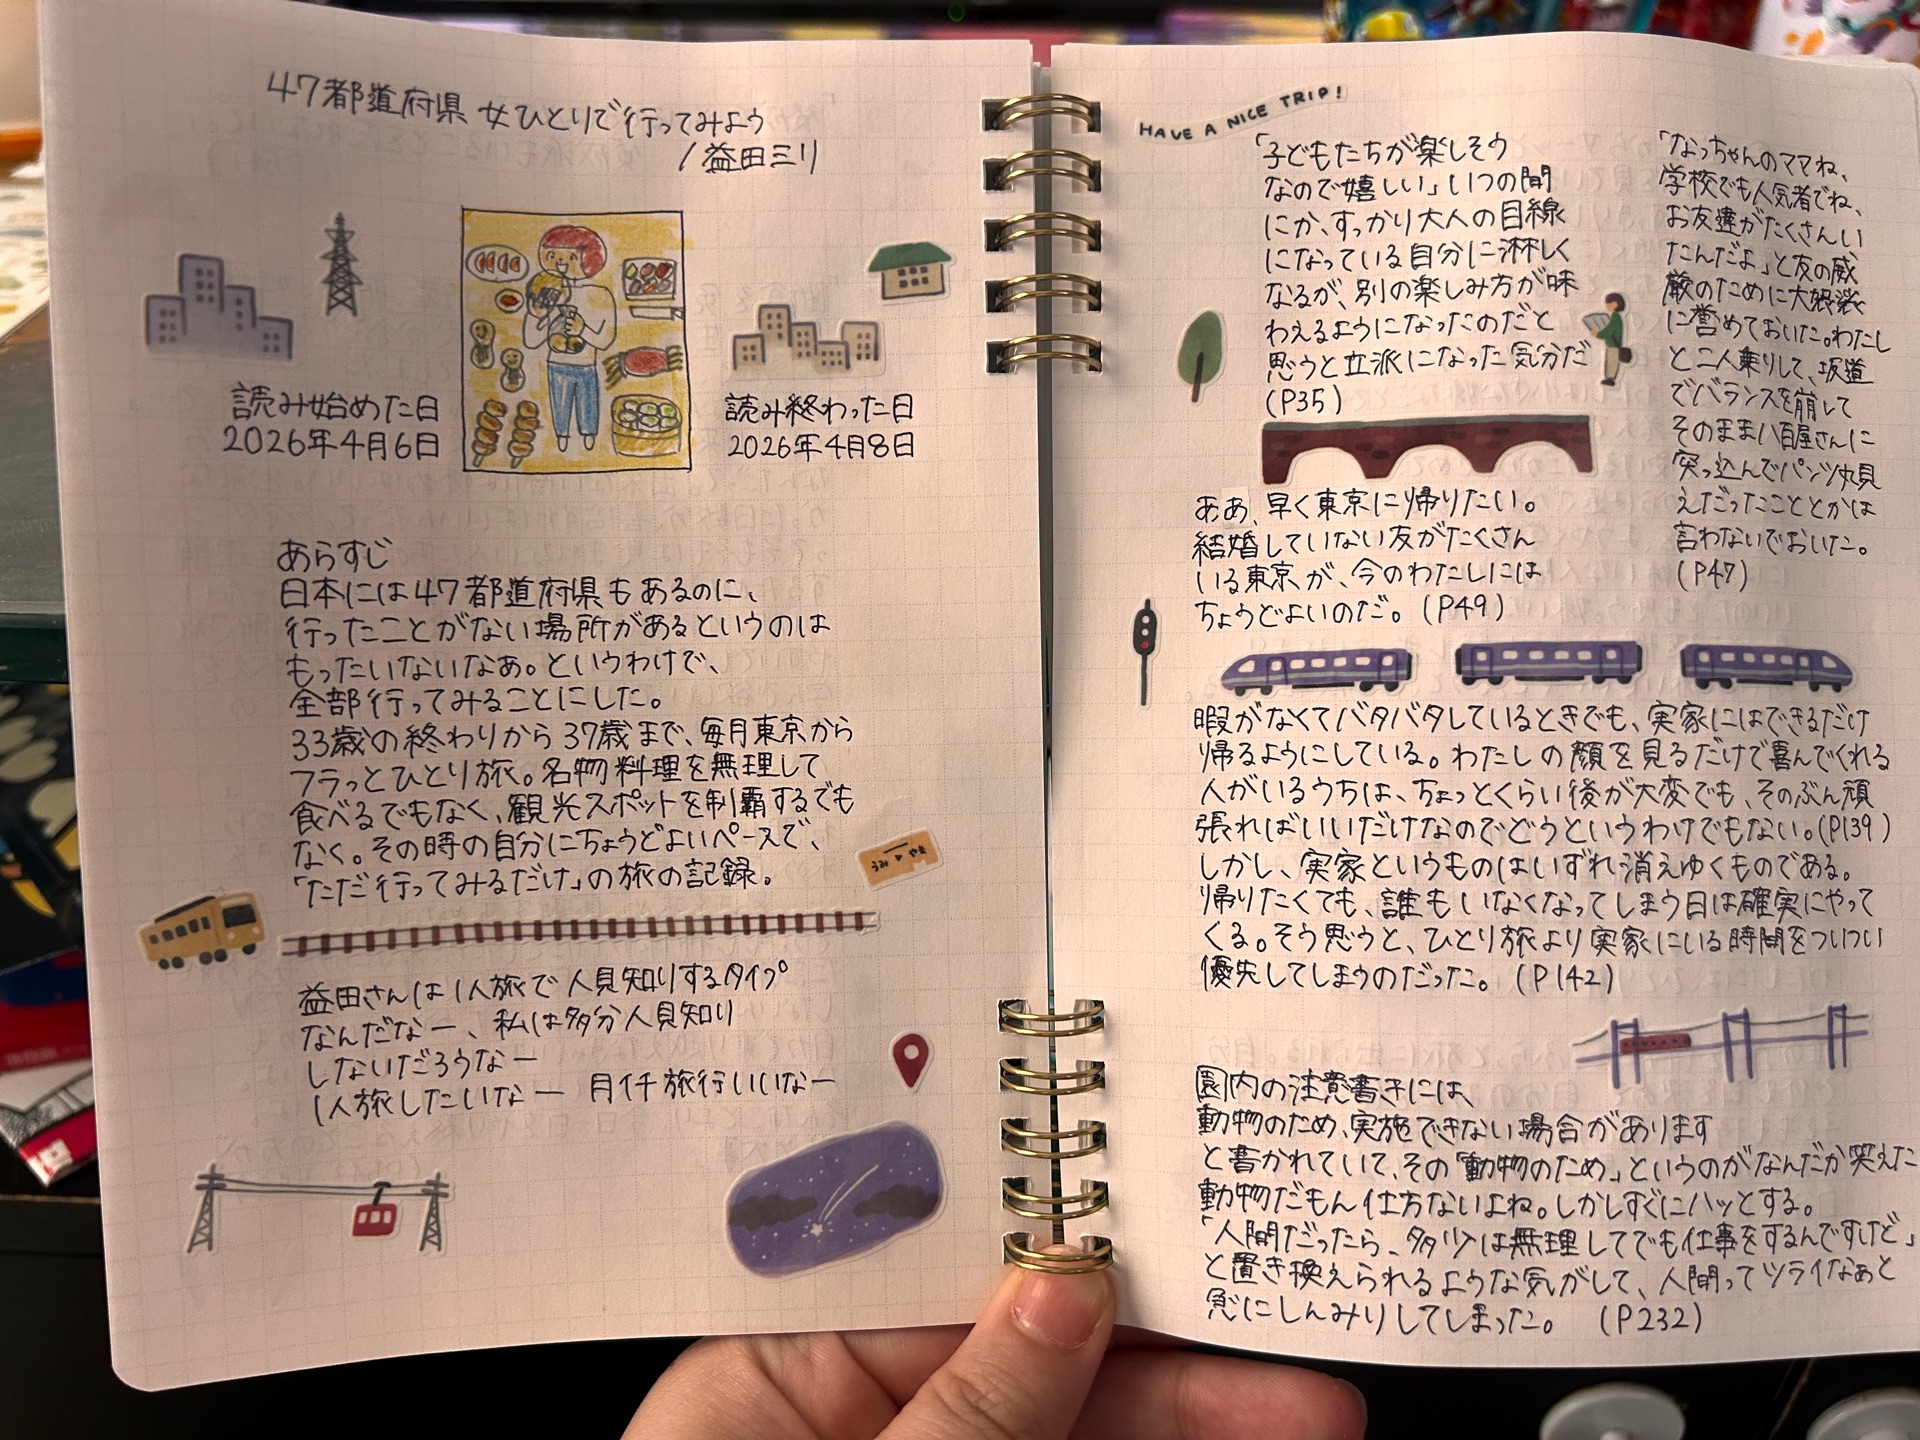 47都道府県 女ひとりで行ってみよう
/益田ミリ
読み始めた日
2026年4月6日
読み終わった日
2026年4月8日
あらすじ
日本には47都道府県もあるのに、
行ったことがない場所があるというのは
もったいないなぁ。というわけで、
全部行ってみることにした。
33歳の終わりから37歳まで、毎月東京から
フラっとひとり旅。名物料理を無理して
食べるでもなく、観光スポットを制覇するでも
なく。その時の自分にちょうどよいペースで、
「ただ行ってみるだけ」の旅の記録。
益田さんは1人旅で人見知りするタイプ
なんだなー、私は多分人見知り
しないだろうなー
1人旅したいなー 月イチ旅行いいなー
HAVE A NICE TRIP!
「子どもたちが楽しそう
なので嬉しい」いつの間
にか、すっかり大人の目線
になっている自分に淋しく
なるが、別の楽しみ方が味
わえるようになったのだと
思うと立派になった気分だ
(P35)
「なっちゃんのママね、
学校でも人気者でね、
お友達がたくさんい
たんだよ」と友の威
厳のために大袈裟
に誉めておいた。わたし
と二人乗りして、坂道
でバランスを崩して
そのまま八百屋さんに
突っ込んでパンツ丸見
えだったこととかは
言わないでおいた。
(P47)
ああ、早く東京に帰りたい。
結婚していない友がたくさん
いる東京が、今のわたしには
ちょうどよいのだ。(P49)
暇がなくてバタバタしているときでも、実家にはできるだけ
帰るようにしている。わたしの顔を見るだけで喜んでくれる
人がいるうちは、ちょっとくらい後が大変でも、そのぶん頑
張ればいいだけなのでどうというわけでもない。(P139)
しかし、実家というものはいずれ消えゆくものである。
帰りたくても、誰もいなくなってしまう日は確実にやって
くる。そう思うと、ひとり旅より実家にいる時間をついつい
優先してしまうのだった。(P142)
園内の注意書きには、
動物のため、実施できない場合があります
と書かれていて、その「動物のため」というのがなんだか笑えた
動物だもん仕方ないよね。しかしすぐにハッとする。
「人間だったら、多少は無理してでも仕事をするんですけど」
と置き換えられるような気がして、人間ってツライなぁと
急にしんみりしてしまった。 (P232)